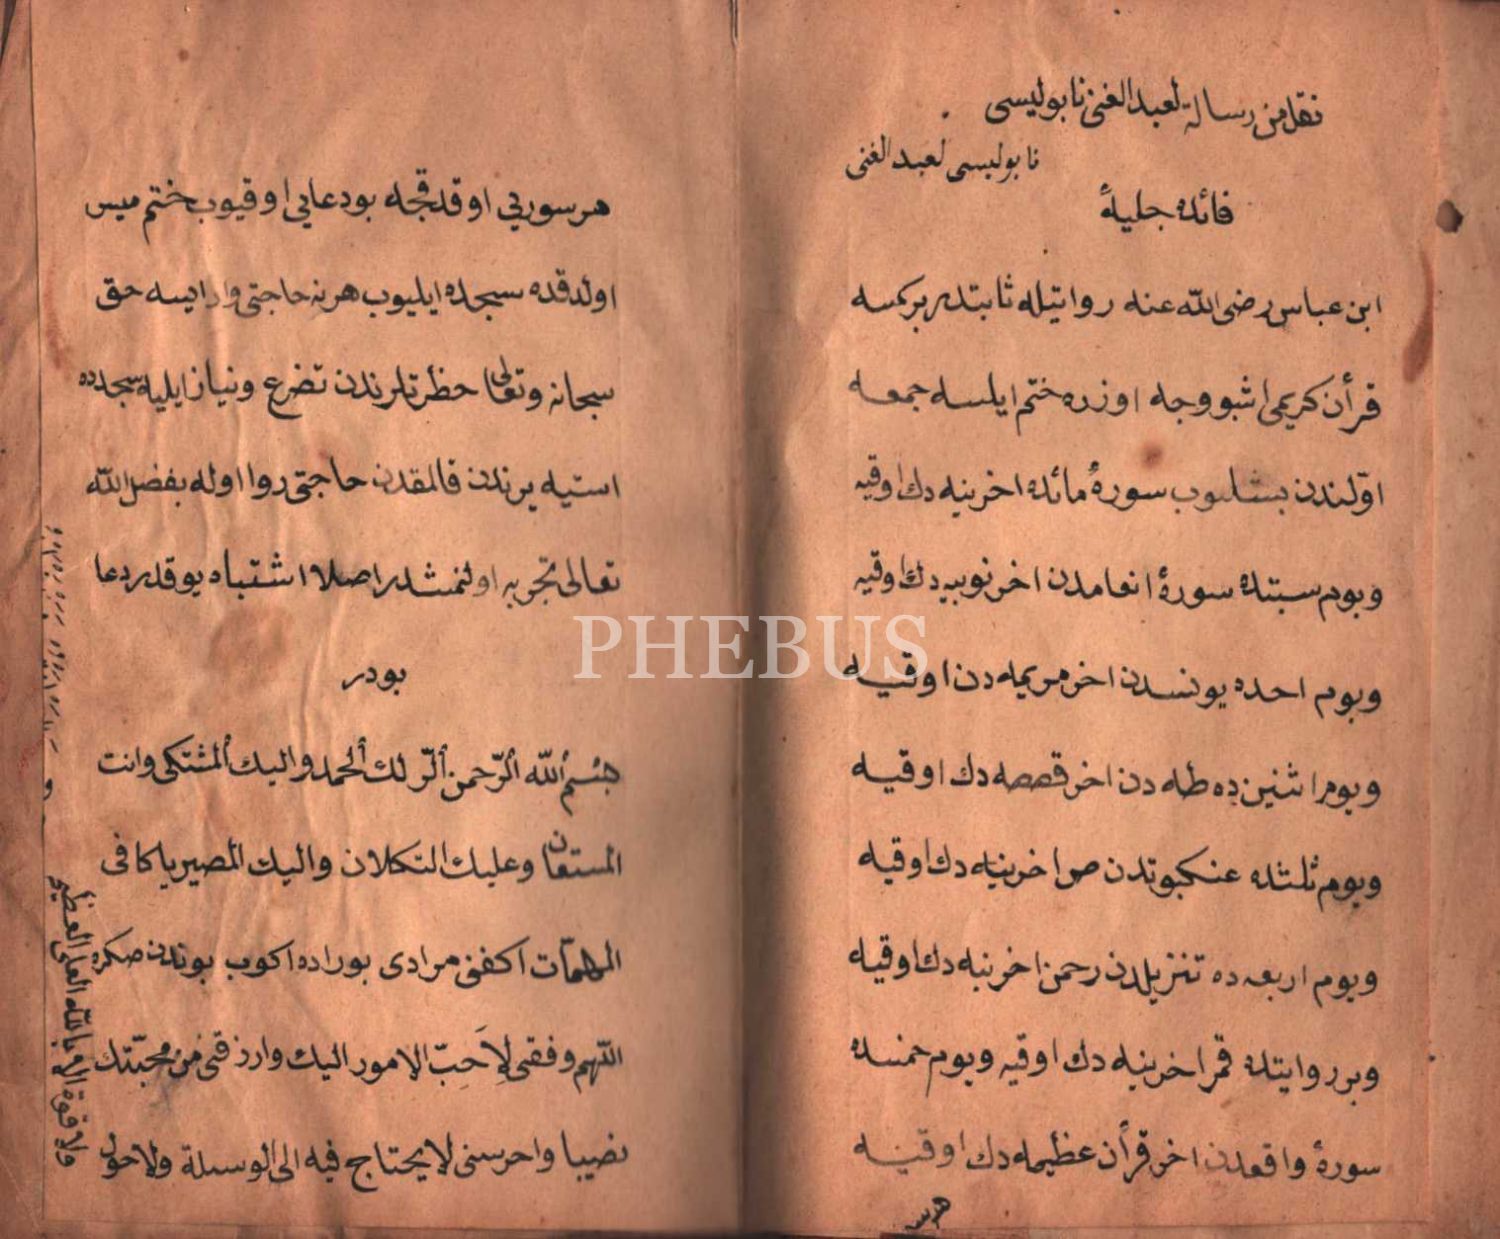 نقل من رسالة لعبد الغنى نابوليسى
نابوليسى لعبد الغنى
فائده جليلهٔ
ابن عباس رضى الله عنه روايتيله ثابتدر بر كمسه
قرأن كريمى اشبو وجه اوزره ختم ايلسه جمعه
اوّلندن بشليوب سورهٔ مائده اخرينه دك اوقيه
ويوم سبتده سورهٔ انعامدن اخر توبيه دك اوقيه
ويوم احده يونسدن اخر مريمه دن اوقيه
ويوم اثنين ده طه دن اخر قصصه دك اوقيه
ويوم ثلثده عنكبوتدن ص اخرينه دك اوقيه
ويوم اربعه ده تنزيلدن رحمن اخرينه دك اوقيه
وبر روايتده قمر اخرينه دك اوقيه ويوم خمسده
سورهٔ واقعدن اخر قرأن عظيمه دك اوقيه
هر سـ
هر سوريى اوقدقجه بو دعايى اوقيوب ختم ميس
اولدقده سجده ايليوب هر نه حاجتى وار ايسه حق
سبحانه وتعالى حظرتلرندن تضرع ونياز ايليه سجدده
استيه يرندن قالمقدن حاجتى روا اوله بفضل الله
تعالى تجربه اولنمشدر اصلا اشتباه يوقدر دعا
بودر
بسم الله الرّحمن الرّ لك الحمد واليك المشتكى وانت
المستعان وعليك التكلان واليك المصير يا كافى
المهمّات اكفنى مرادى بوراده اكوب بوندن صكره
اللّهم وفقنى لِاَحَبّ الامور اليك وارزقنى من محبّتك
نصيبا واحرسنى لا يحتاج فيه الى الوسيلة ولا حول
ولا قوة الا بالله العلى العظيم
PHEBUS